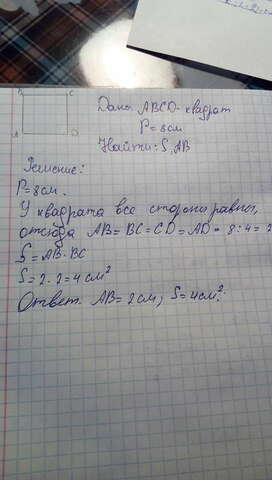 B C
Дано: ABCD- квадрат
P = 8 см
A D
Найти: S, AB
Решение:
P = 8 см.
У квадрата все стороны равны,
отсюда AB = BC = CD = AD = 8 : 4 = 2
S = AB · BC
S = 2 · 2 = 4 см²
Ответ: AB = 2 см, S = 4 см².